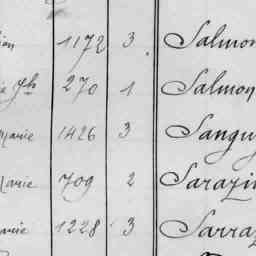 1172 3 Salmon
270 1 Salmon
Marie 1426 3 Sangu
Marie 709 2 Sarazi
1228 3 Sarraz